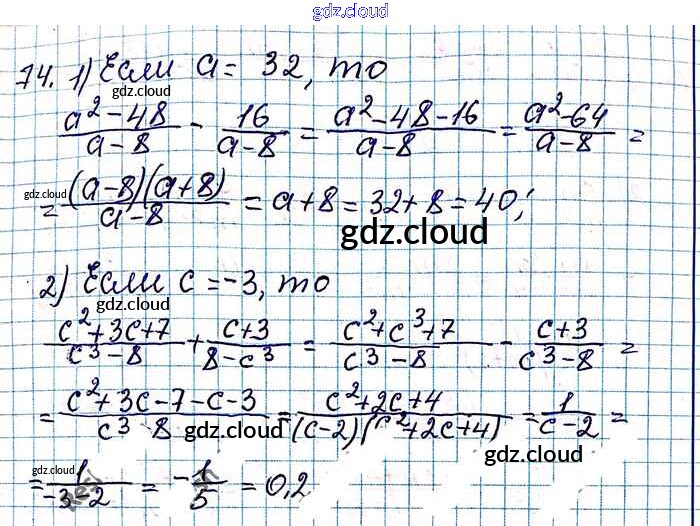 gdz.cloud
74. 1) Если a = 32, то
(a² - 48)/(a - 8) - 16/(a - 8) = (a² - 48 - 16)/(a - 8) = (a² - 64)/(a - 8) =
gdz.cloud
= ((a - 8)(a + 8))/(a - 8) = a + 8 = 32 + 8 = 40;
gdz.cloud
gdz.cloud
2) Если c = -3, то
gdz.cloud
(c² + 3c + 7)/(c³ - 8) + (c + 3)/(8 - c³) = (c² + c³ + 7)/(c³ - 8) - (c + 3)/(c³ - 8) =
= (c² + 3c - 7 - c - 3)/(c³ - 8) = (c² + 2c + 4)/((c - 2)(c² + 2c + 4)) = 1/(c - 2) =
gdz.cloud
gdz.cloud
= 1/(-3 - 2) = -1/5 = 0,2